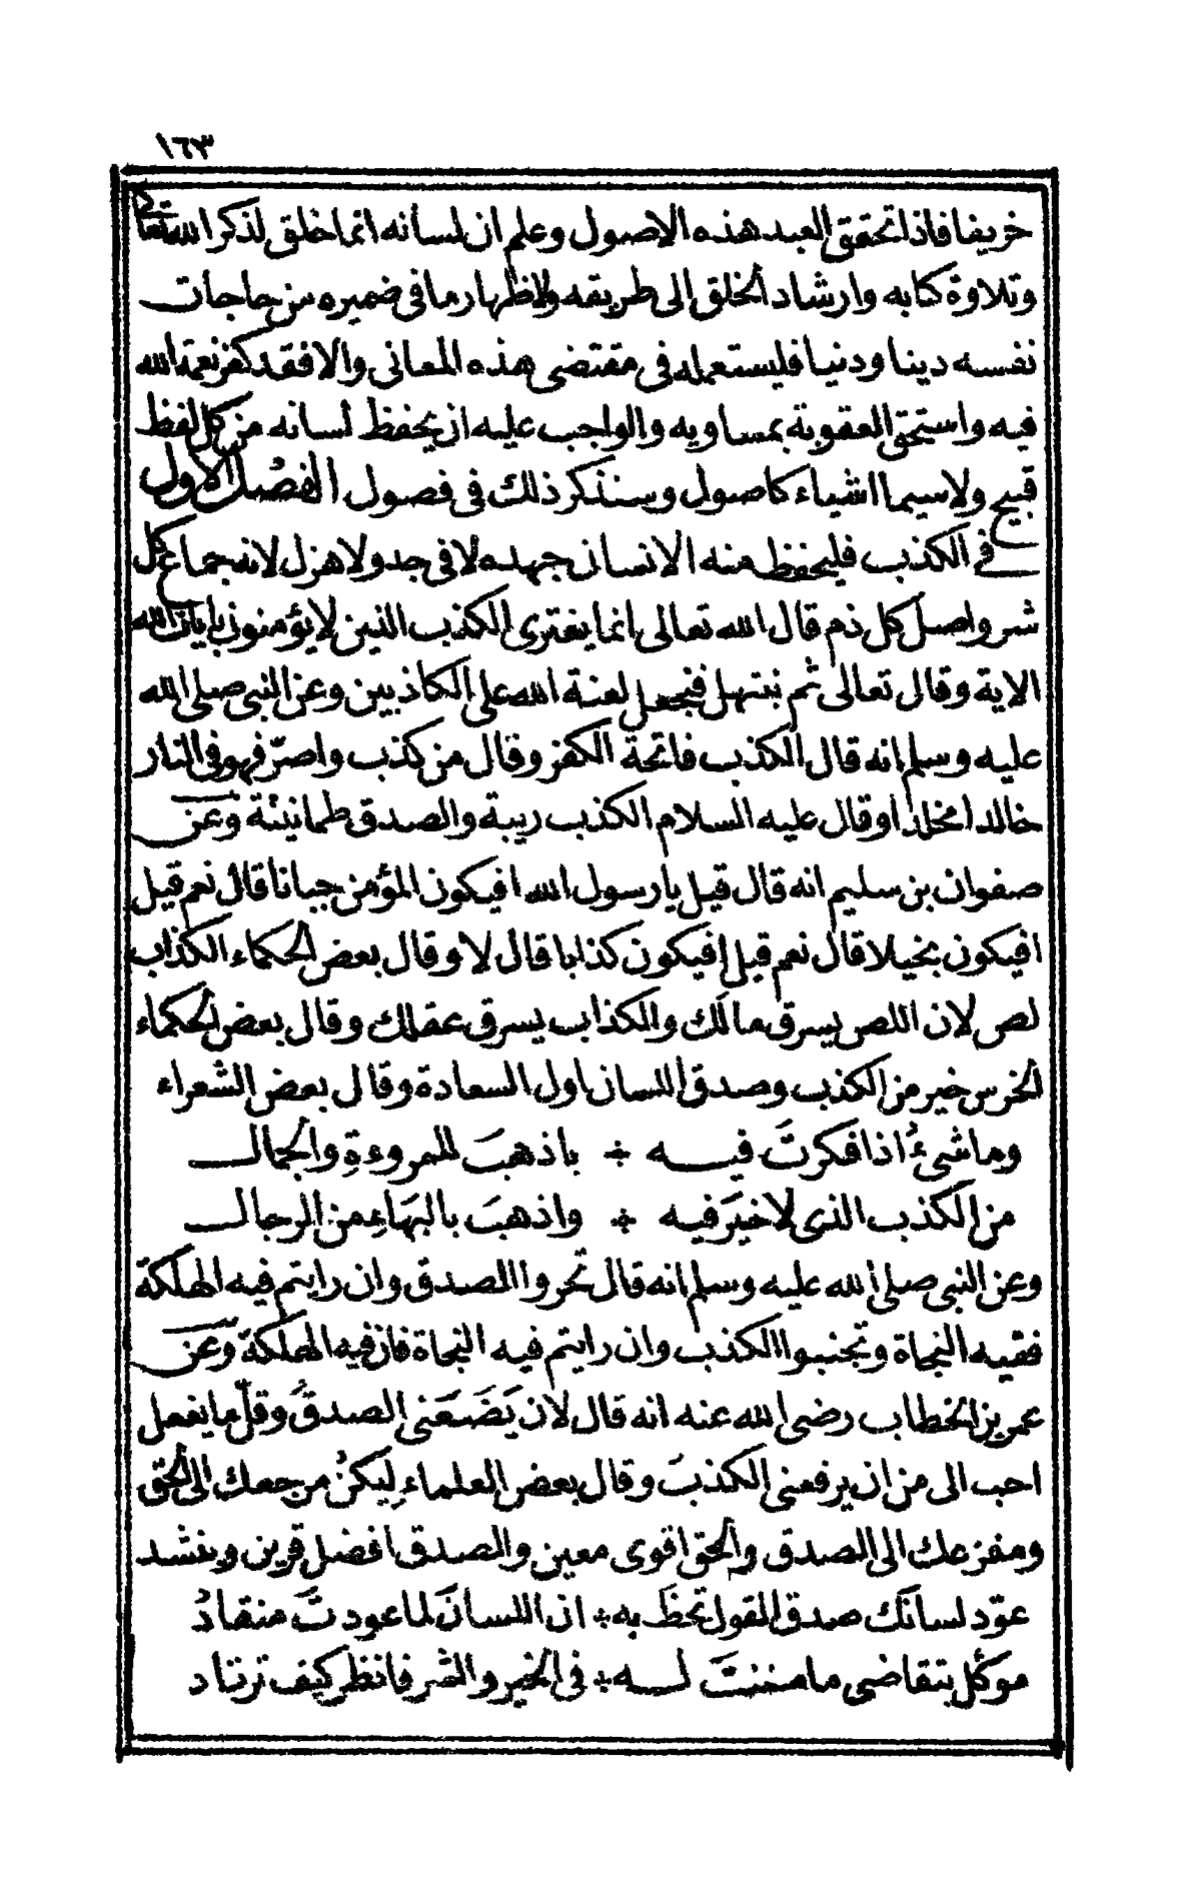 ١٦٣
خريفا فاذا تحقق العبد هذه الاصول وعلم ان لسانه انما خلق لذكر الله تعالى
وتلاوة كتابه وارشاد الخلق الى طريقه ولاظهار ما في ضميره من حاجات
نفسه دينا ودنيا فليستعمله في مقتضى هذه المعاني والا فقد كفر نعمة الله
فيه واستحق العقوبة بمساويه والواجب عليه ان يحفظ لسانه من كل لفظ
قبيح ولاسيما اشياء كاصول وسنذكر ذلك في فصول الفصل الاول
في الكذب فليحفظ منه الانسان جهده لا في جد ولا هزل لانه جماع كل
شر واصل كل ذم قال الله تعالى انما يفترى الكذب الذين لا يؤمنون بايات الله
الاية وقال تعالى ثم نبتهل فنجعل لعنة الله على الكاذبين وعن النبي صلى الله
عليه وسلم انه قال الكذب فاتحة الكفر وقال من كذب واصرّ فهو في النار
خالدا مخلدا وقال عليه السلام الكذب ريبة والصدق طمانينة وعن
صفوان بن سليم انه قال قيل يا رسول الله افيكون المؤمن جبانا قال نعم قيل
افيكون بخيلا قال نعم قيل افيكون كذابا قال لا وقال بعض الحكماء الكذاب
لص لان اللص يسرق مالَك والكذاب يسرق عقلك وقال بعض الحكماء
الخرس خير من الكذب وصدق اللسان اول السعادة وقال بعض الشعراء
وما شيءُ اذا فكرتَ فيه ÷ باذهبَ للمروءةِ والجمال
من الكذب الذى لا خيرَ فيه ÷ واذهبَ بالبهاءِ من الرجال
وعن النبي صلى الله عليه وسلم انه قال تحروا الصدق وان رايتم فيه الهلكة
ففيه النجاة وتجنبوا الكذب وان رايتم فيه النجاة فان فيه الهلكة وعن
عمر بن الخطاب رضي الله عنه انه قال لان يَضَعَني الصدقُ وقلّ ما يفعل
احب الى من ان يرفعني الكذبَ وقال بعض العلماءِ ليكنُ مرجعك الى الحق
ومفزعك الى الصدق والحق اقوى معين والصدق افضل قرين وينشد
عوّد لسانَك صدق القول تحظَ به ÷ ان اللسانَ لما عودتَ منقادُ
موكل بتقاضي ما سننتَ له ÷ في الخير والشر فانظر كيف ترتاد